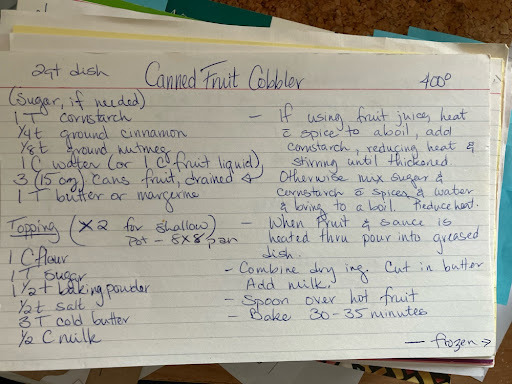 2qt dish
Canned Fruit Cobbler
400°
(Sugar, if needed)
1 T cornstarch
1/4 t ground cinnamon
1/8 t ground nutmeg
1 C water (or 1 C fruit liquid)
3 (15 oz) cans fruit, drained
1 T butter or margerine
Topping (X2 for shallow
Pot - 8X8 pan
1 C flour
1 T sugar
1 1/2 t baking powder
1/2 t salt
3 T cold butter
1/2 C milk
- If using fruit juice, heat
c̄ spice to a boil, add
cornstarch, reducing heat &
stirring until thickened.
Otherwise mix sugar &
cornstarch c̄ spices & water
& bring to a boil. Reduce heat.
- When fruit & sauce is
heated thru pour into greased
dish.
- Combine dry ing. Cut in butter
Add milk.
- Spoon over hot fruit
- Bake 30-35 minutes
- frozen →